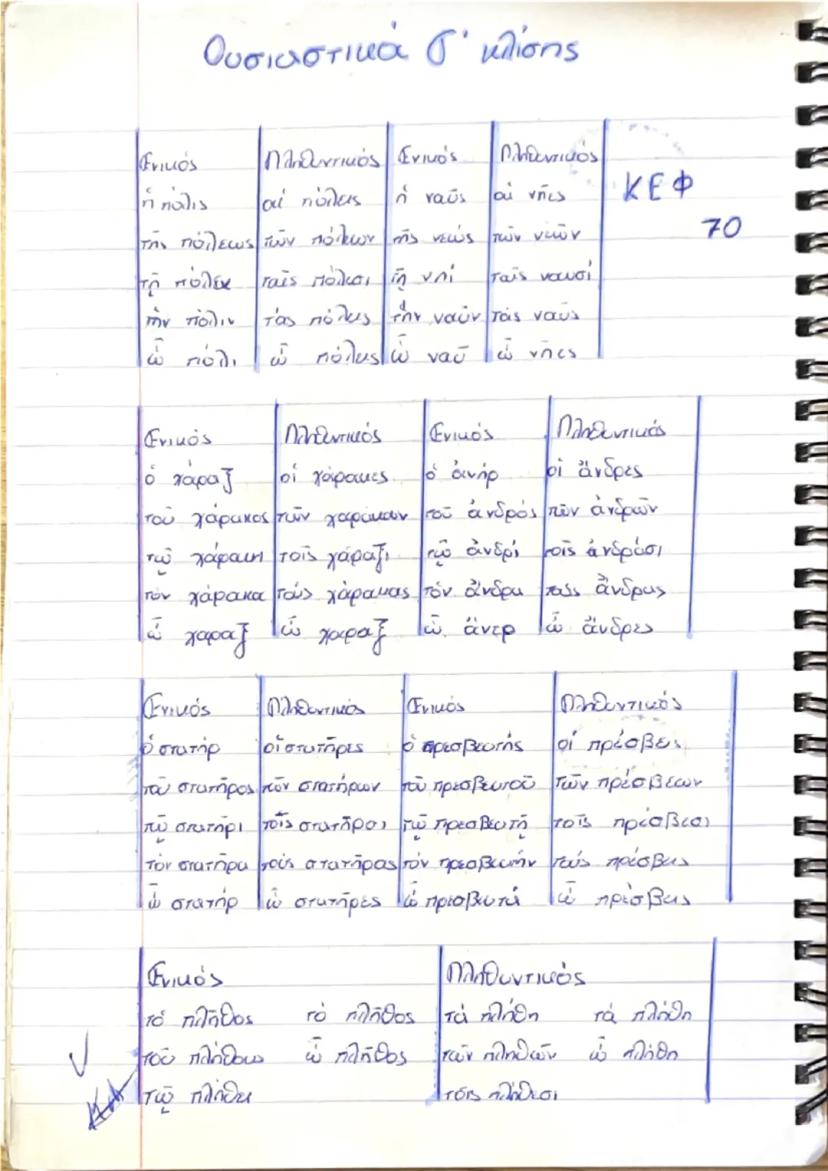 Ουσιαστικά γ' κλίσης
Ενικός Πληθυντικός Ενικός Πληθυντικός
ἡ πόλις αἱ πόλεις ἡ ναῦς αἱ νῆες ΚΕΦ
τῆς πόλεως τῶν πόλεων τῆς νεώς τῶν νεῶν 70
τῇ πόλει ταῖς πόλεσι τῇ νηί ταῖς ναυσί
τήν πόλιν τάς πόλεις τήν ναῦν τάς ναῦς
ὦ πόλι ὦ πόλεις ὦ ναῦ ὦ νῆες
Ενικός Πληθυντικός Ενικός Πληθυντικός
ὁ χάραξ οἱ χάρακες ὁ ἀνήρ οἱ ἄνδρες
τοῦ χάρακος τῶν χαράκων τοῦ ἀνδρός τῶν ἀνδρῶν
τῷ χάρακι τοῖς χάραξι τῷ ἀνδρί τοῖς ἀνδράσι
τόν χάρακα τούς χάρακας τόν ἄνδρα τούς ἄνδρας
ὦ χαραξ ὦ χαραξ ὦ ἄνερ ὦ ἄνδρες
Ενικός Πληθυντικός Ενικός Πληθυντικός
ὁ στατήρ οἱ στατῆρες ὁ πρεσβευτής οἱ πρέσβεις
τοῦ στατῆρος τῶν στατήρων τοῦ πρεσβευτοῦ τῶν πρέσβεων
τῷ στατῆρι τοῖς στατῆρσι τῷ πρεσβευτῇ τοῖς πρέσβεσι
τόν στατῆρα τούς στατῆρας τόν πρεσβευτήν τούς πρέσβεις
ὦ στατήρ ὦ στατῆρες ὦ πρεσβευτά ὦ πρέσβεις
Ενικός Πληθυντικός
τό πλῆθος τό πλῆθος τά πλήθη τά πλήθη
τοῦ πλήθους ὦ πλῆθος τῶν πληθῶν ὦ πλήθη
τῷ πλήθει τοῖς πλήθεσι